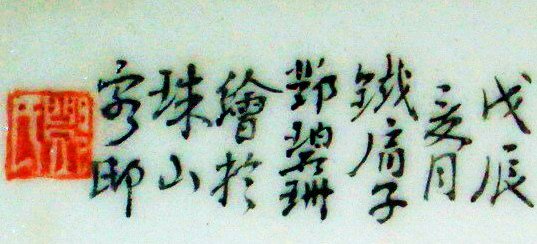 戊辰
夏月
鐵肩子
鄧碧珊
繪於
珠山
客邸